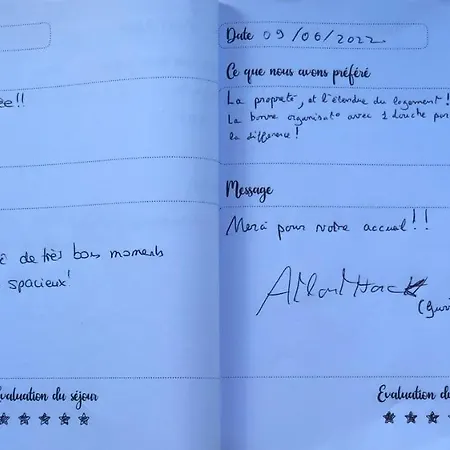 ée!!
de très bons moments
spacieux!
Evaluation du séjour
Date 09/06/2022
Ce que nous avons préféré
La propreté, et l'étendue du logement!
La bonne organisato avec 1 douche
la différence!
Message
Merci pour votre accueil!!
Evaluation du